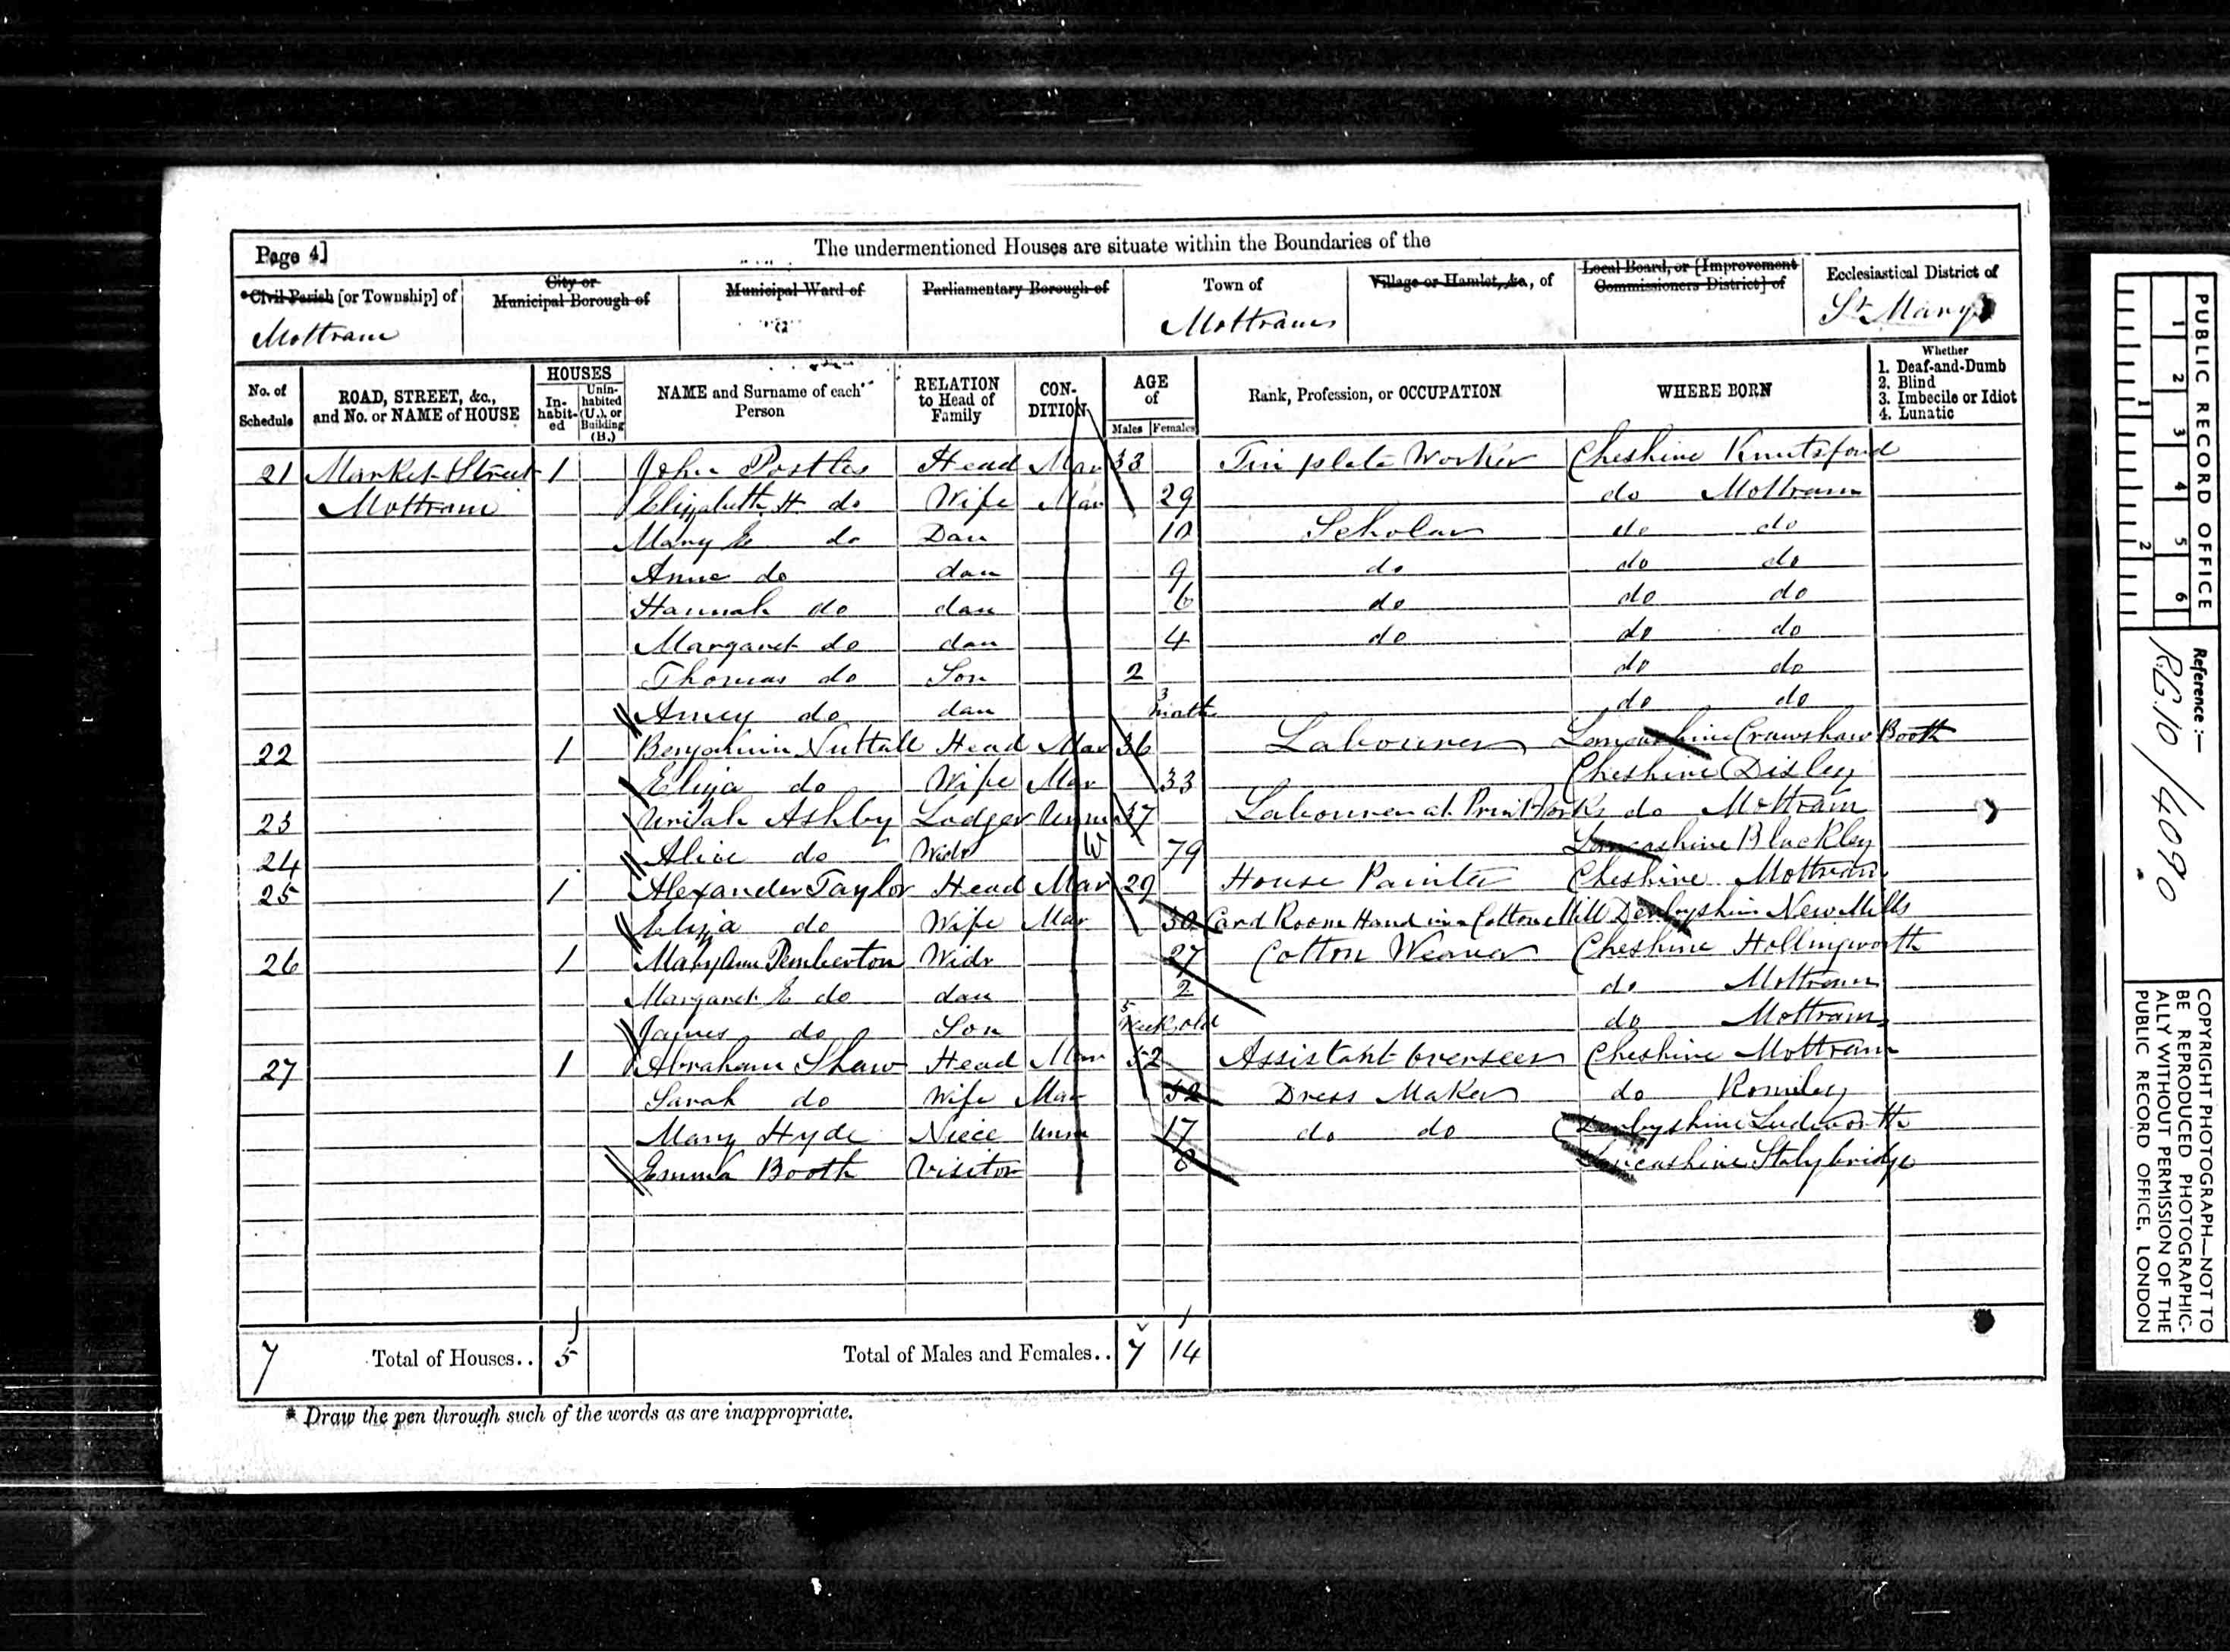 Page 4]
The undermentioned Houses are situate within the Boundaries of the
*Civil Parish [or Township] of
City or Municipal Borough of
Municipal Ward of
Parliamentary Borough of
Town of
Village or Hamlet, &c., of
Local Board, or [Improvement Commissioners District] of
Ecclesiastical District of
Mottram
Mottram
St Mary
No. of Schedule
ROAD, STREET, &c., and No. or NAME of HOUSE
HOUSES
In-habit-ed
Unin-habited (U.), or Building (B.)
NAME and Surname of each Person
RELATION to Head of Family
CON-DITION
AGE of
Males
Females
Rank, Profession, or OCCUPATION
WHERE BORN
Whether
1. Deaf-and-Dumb
2. Blind
3. Imbecile or Idiot
4. Lunatic
21 Market Street 1 John Postles Head Mar 33 Tin plate Worker Cheshire Knutsford
Mottram Elizabeth H do Wife Mar 29 do Mottram
Mary E do Dau 10 Scholar do do
Anne do dau 9 do do do
Hannah do dau 6 do do do
Margaret do dau 4 do do do
Thomas do Son 2 do do
Amey do dau 3 month do do
22 1 Benjamin Nuttall Head Mar 36 Labourer Lancashire Crawshaw Booth
Eliza do Wife Mar 33 Cheshire Disley
23 Uriah Ashby Lodger Unm 37 Labourer at Print Works do Mottram
24 Alice do Widr W 79 Lancashire Blackley
25 1 Alexander Taylor Head Mar 29 House Painter Cheshire Mottram
Eliza do Wife Mar 30 Card Room Hand in a Cotton Mill Derbyshire New Mills
26 1 Mary Ann Pemberton Widr 27 Cotton Weaver Cheshire Hollingworth
Margaret E do dau 2 do Mottram
James do Son 5 Week old do Mottram
27 1 Abraham Shaw Head Mar 52 Assistant Overseer Cheshire Mottram
Sarah do Wife Mar 52 Dress Maker do Romiley
Mary Hyde Niece Unm 17 do do Derbyshire Ludworth
Emma Booth Visitor 6 Lancashire Stalybridge
7 Total of Houses.. 5 Total of Males and Females.. 7 14
* Draw the pen through such of the words as are inappropriate.
PUBLIC RECORD OFFICE
1 2 3 4 5 6
1 2
Reference :—
RG.10 / 4090
COPYRIGHT PHOTOGRAPH—NOT TO
BE REPRODUCED PHOTOGRAPHIC-
ALLY WITHOUT PERMISSION OF THE
PUBLIC RECORD OFFICE, LONDON